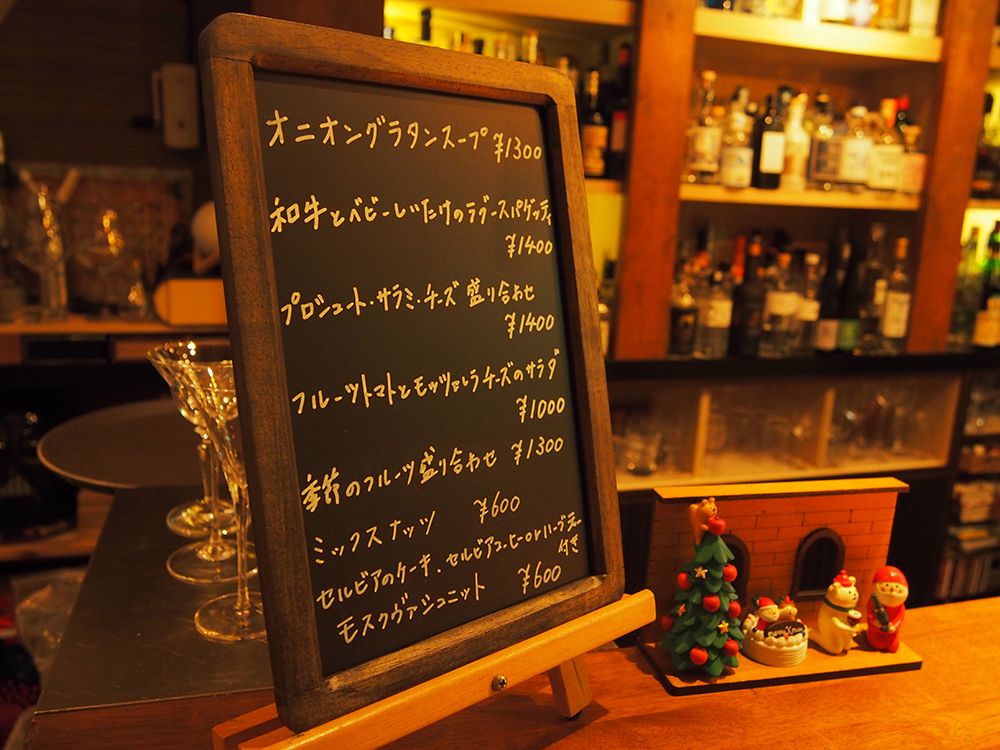 オニオングラタンスープ ¥1300
和牛とベビーしいたけのラグースパゲッティ
¥1400
プロシュート・サラミ・チーズ盛り合わせ
¥1400
フルーツトマトとモッツァレラチーズのサラダ
¥1000
季節のフルーツ盛り合わせ ¥1300
ミックスナッツ ¥600
セルビアのケーキ、セルビアコーヒーorハーブティー
付き
モスクヴァシュニット ¥600
merry Xmas